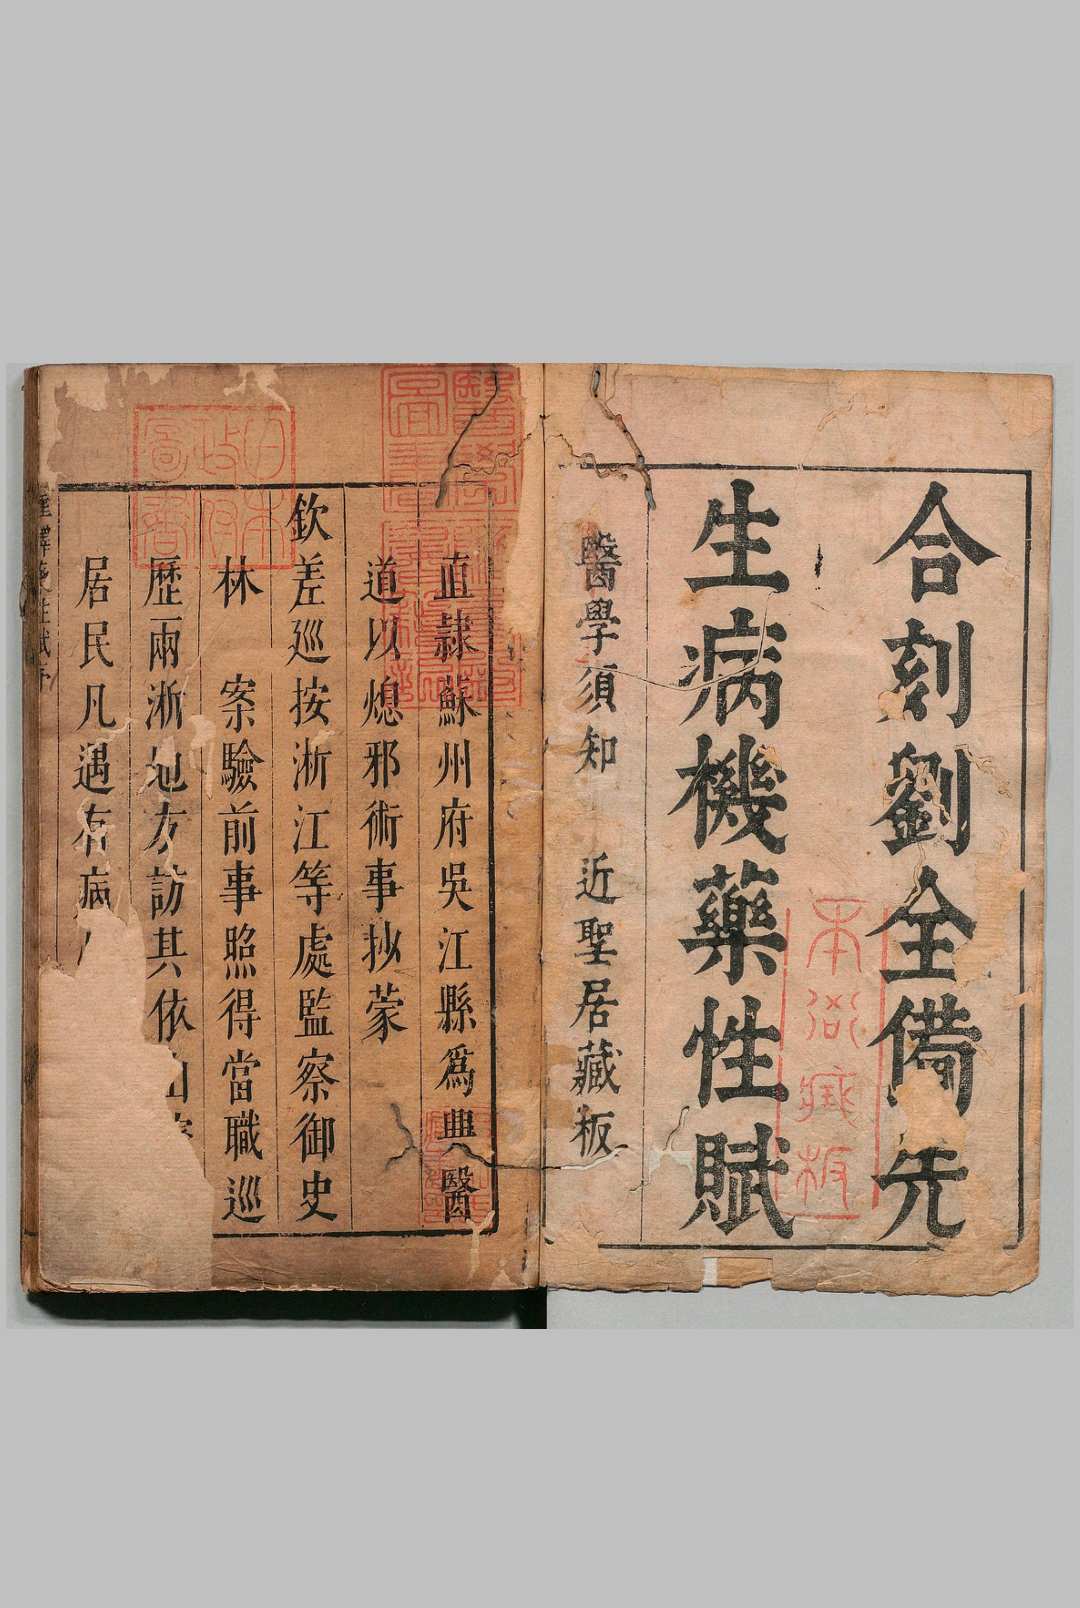 合刻劉全備先
生病機藥性賦
醫學須知 近聖居藏板
本衙藏板
直隸蘇州府吳江縣爲興醫
道以熄邪術事抄蒙
欽差巡按浙江等處監察御史
林 案驗前事照得當職巡
歷兩浙地方訪其依山
居民凡遇有病
日本政府圖書